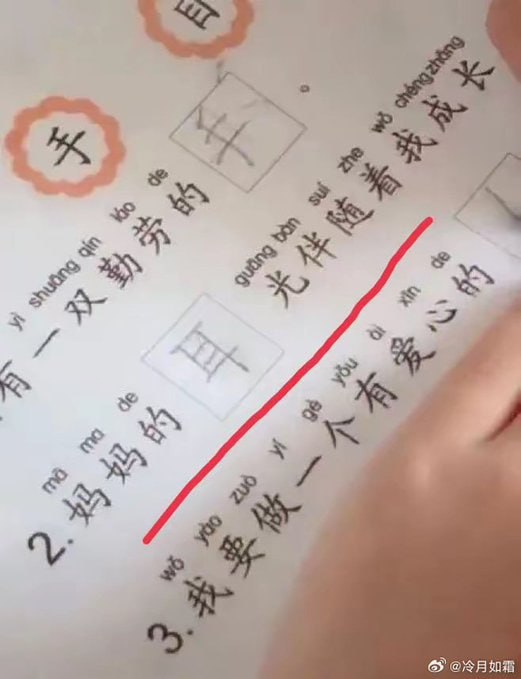 目
手
yì shuāng qín láo de
有一双勤劳的 。
mā ma de guāng bàn suí zhe wǒ chéngzhǎng
2.妈妈的耳光伴随着我成长
wǒ yào zuò yí gè yǒu ài xīn de
3.我要做一个有爱心的
@冷月如霜